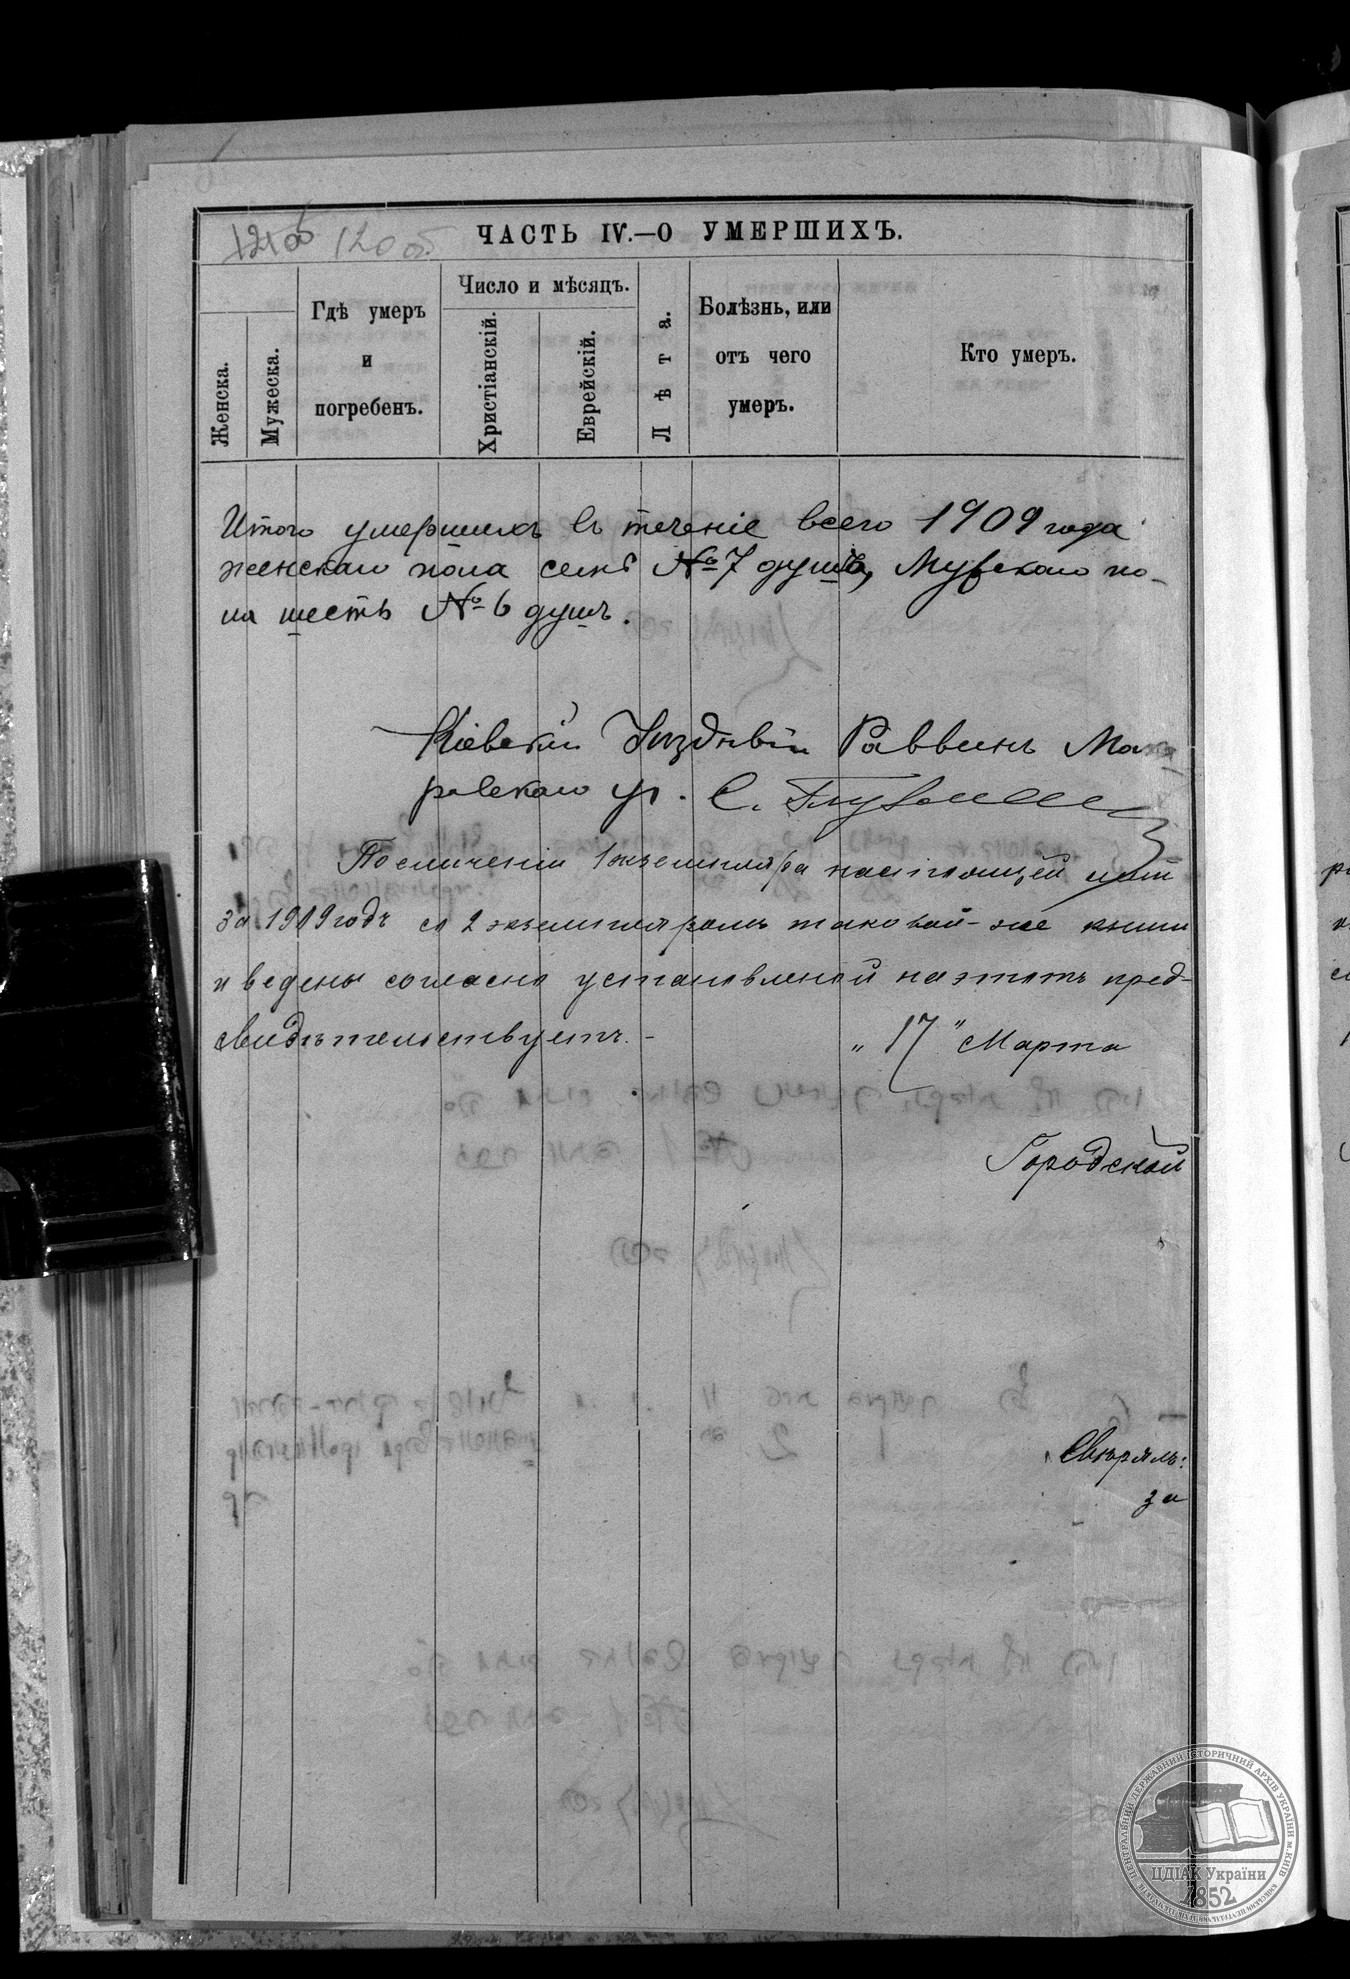 120 об.
ЧАСТЬ IV.—О УМЕРШИХЪ.
Женска.
Мужеска.
Гдѣ умеръ
и
погребенъ.
Число и мѣсяцъ.
Христіанскій.
Еврейскій.
Лѣта.
Болѣзнь, или
отъ чего
умеръ.
Кто умеръ.
Итого умершихъ въ теченіе всего 1909 года
женскаго пола семь № 7 душъ, Мужскаго по-
ла шесть № 6 душъ.
Кіевскій Уѣздный Раввинъ Мака-
ровскаго уч.
По сличеніи 1 экземпляра настоящей
за 1909 годъ съ 2 экземпляромъ таковой-же книги
и ведены согласно установленой на этотъ пред-
свидѣтельствуетъ.- „17" Марта
Городской
Свѣрялъ:
за
ЦЕНТРАЛЬНИЙ ДЕРЖАВНИЙ ІСТОРИЧНИЙ АРХІВ УКРАЇНИ м.КИЇВ
ЦДІАК України
1852